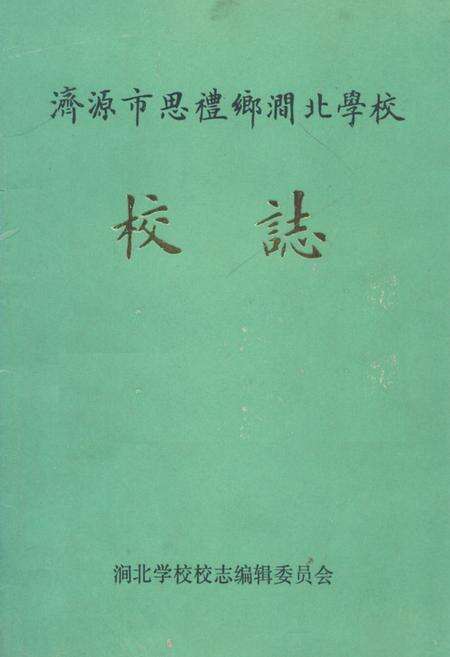 濟源市思禮鄉澗北學校
校誌
涧北学校校志编辑委员会